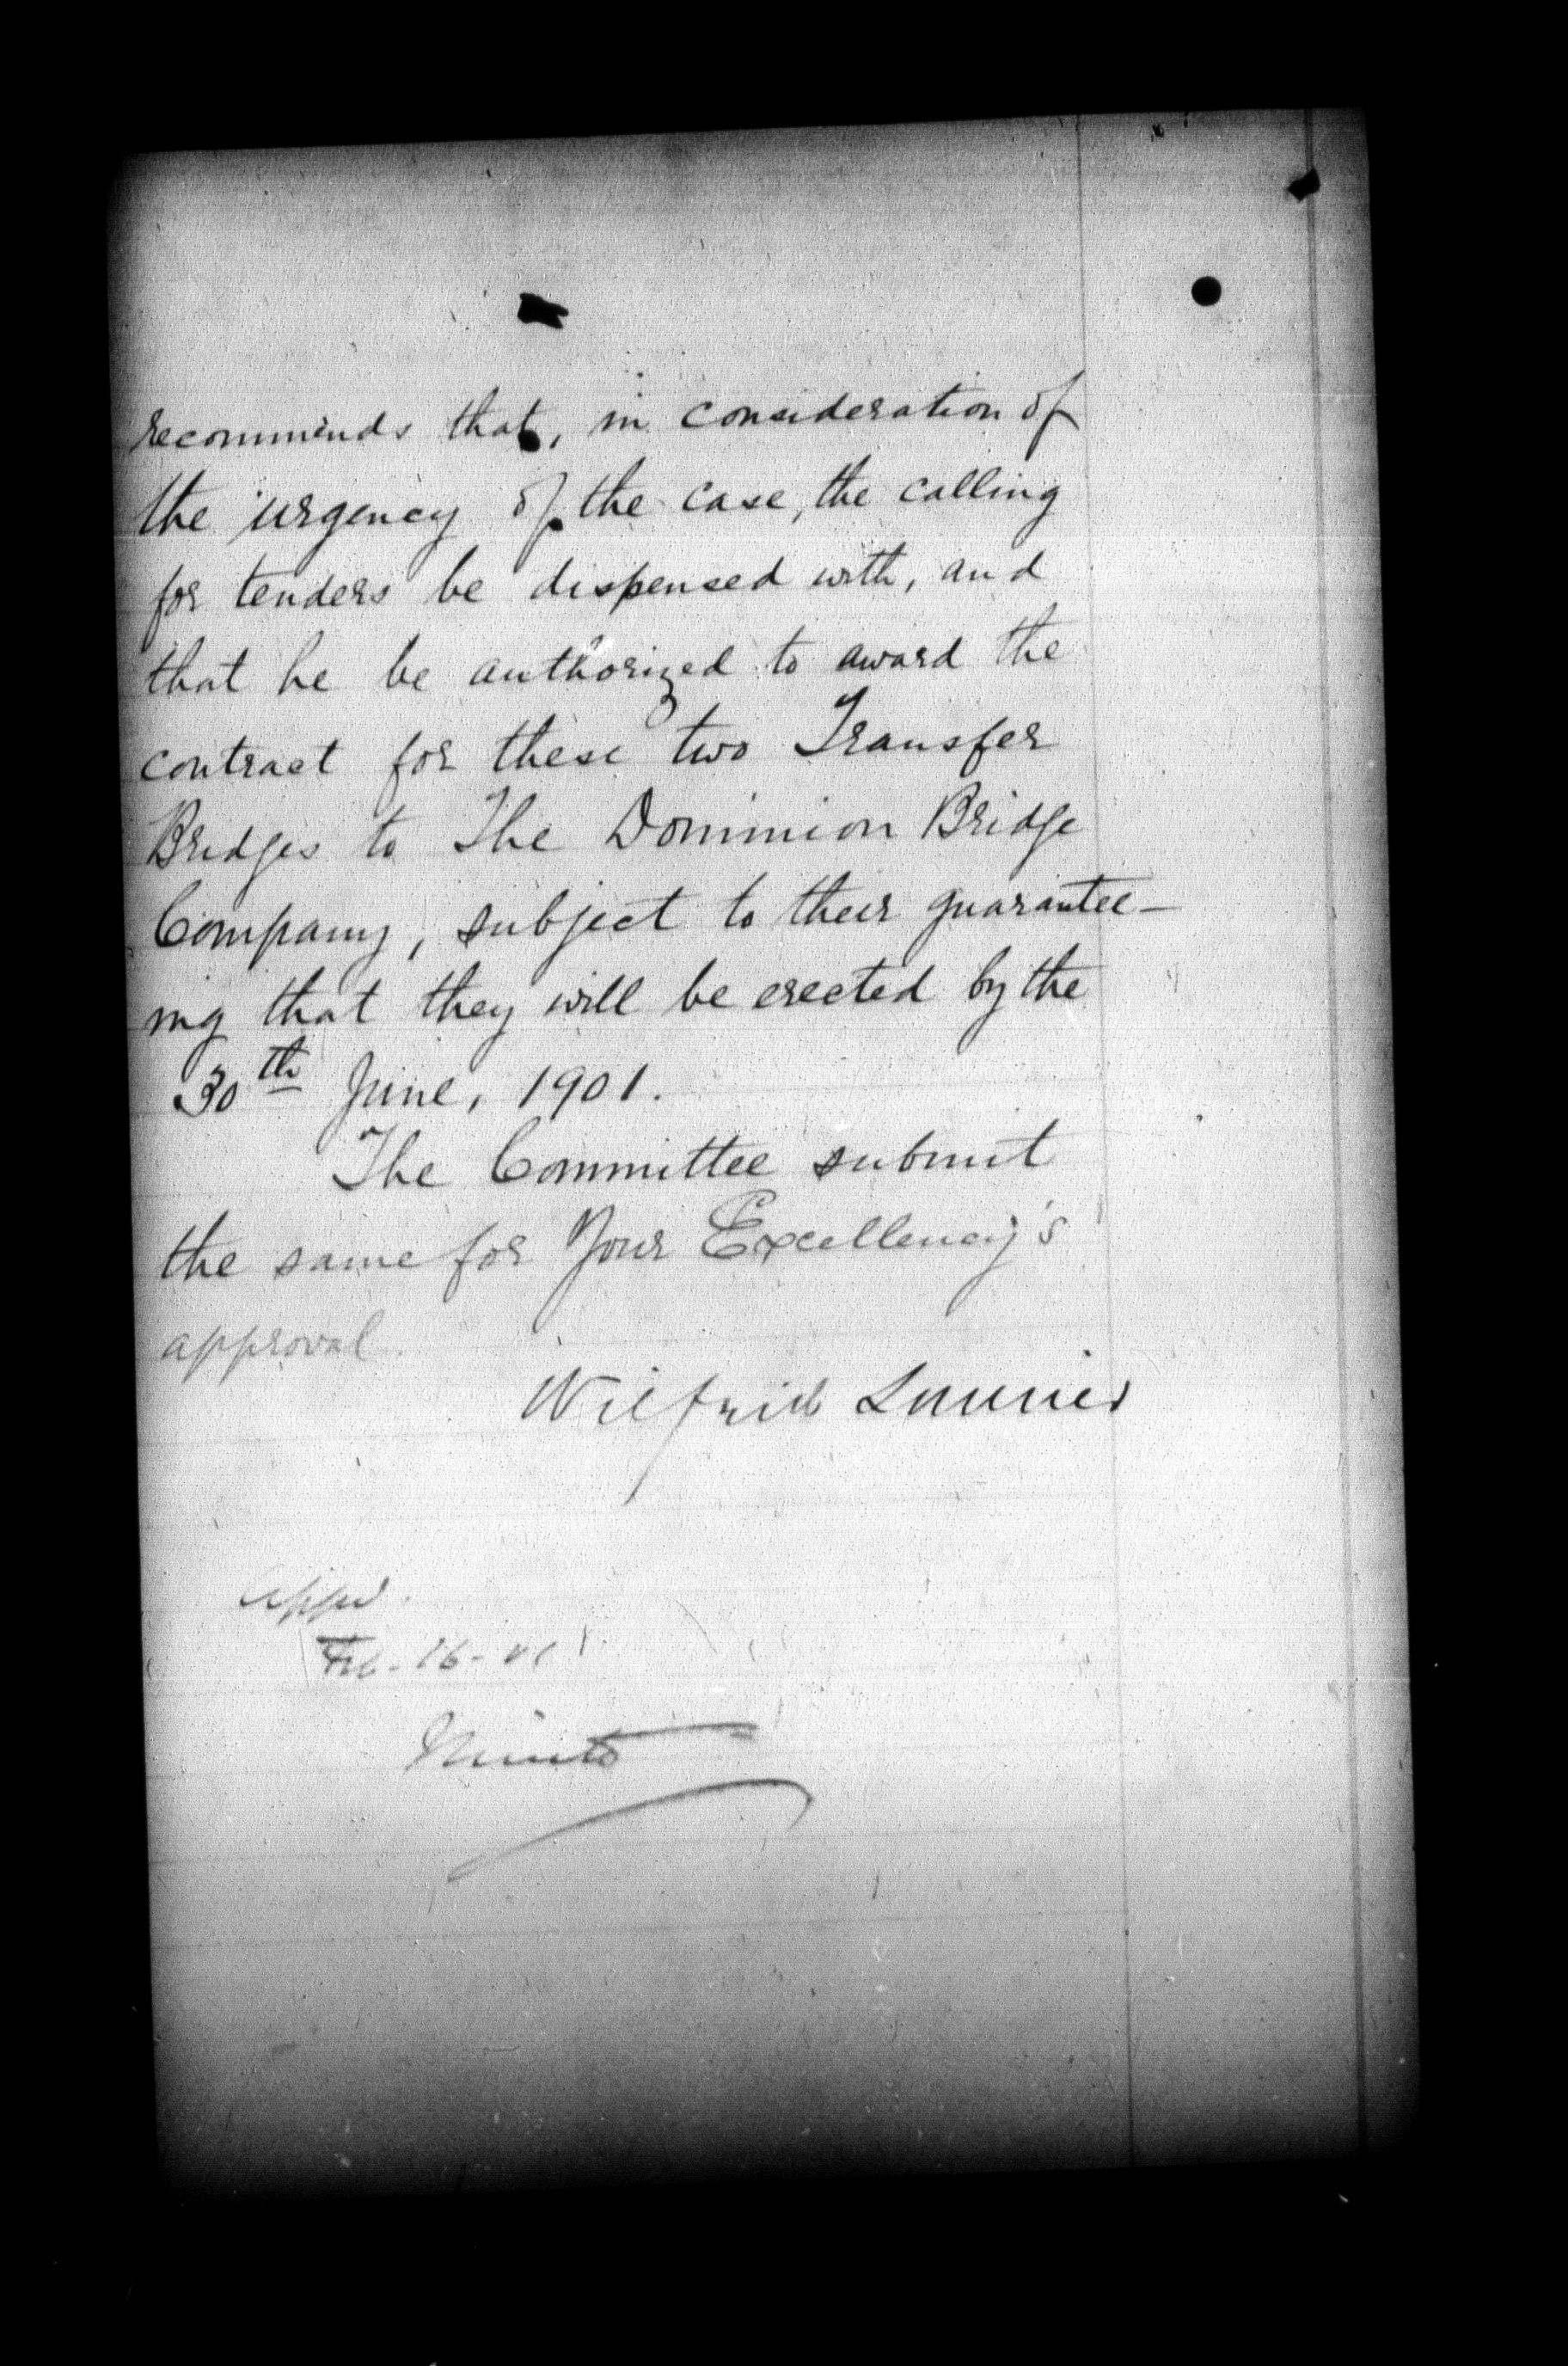 recommends that, in consideration of
the urgency of the case, the calling
for tenders be dispensed with, and
that he be authorized to award the
contract for these two Transfer
Bridges to The Dominion Bridge
Company, subject to their guarantee-
ing that they will be erected by the
30th June, 1901.
The Committee submit
the same for Your Excellency's
approval.
Wilfrid Laurier
Appd.
Feb. 16 - 01
Minto